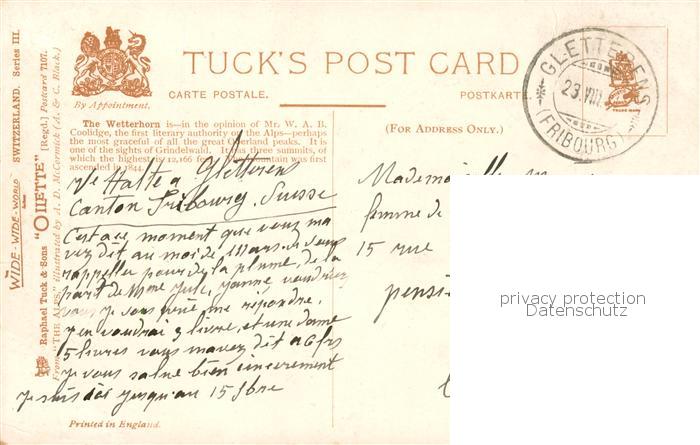 WIDE-WIDE-WORLD SWITZERLAND. Series III.
Raphael Tuck & Sons "OILETTE" [Regd.] Postcard 7107.
From "THE ALPS," illustrated by A. D. McCormick (A. & C. Black.)
By Appointment.
TUCK'S POST CARD
CARTE POSTALE. POSTKARTE
GLETTERENS
23.VIII
(FRIBOURG)
TRADE MARK
The Wetterhorn is—in the opinion of Mr. W. A. B.
Coolidge, the first literary authority on the Alps—perhaps
the most graceful of all the great Oberland peaks. It is
one of the sights of Grindelwald. It has three summits, of
which the highest is 12,166 feet. The mountain was first
ascended in 1844.
(FOR ADDRESS ONLY.)
Halte a Gletterens
Canton Fribourg. Suisse
C'est a ce moment que vous ma
vez dit au mois de Mars de vous
rappeller pour de la plume, de la
part de Mme
vous je vous prie me repondre.
j'en voudrai 3 livre, et une dame
5 livres vous mavez dit a 6 frs
Je vous salue bien sincerement
je suis ici jusqu'au 15 7bre
Mademoiselle
femme de
15 rue
pensi
Printed in England.
privacy protection
Datenschutz